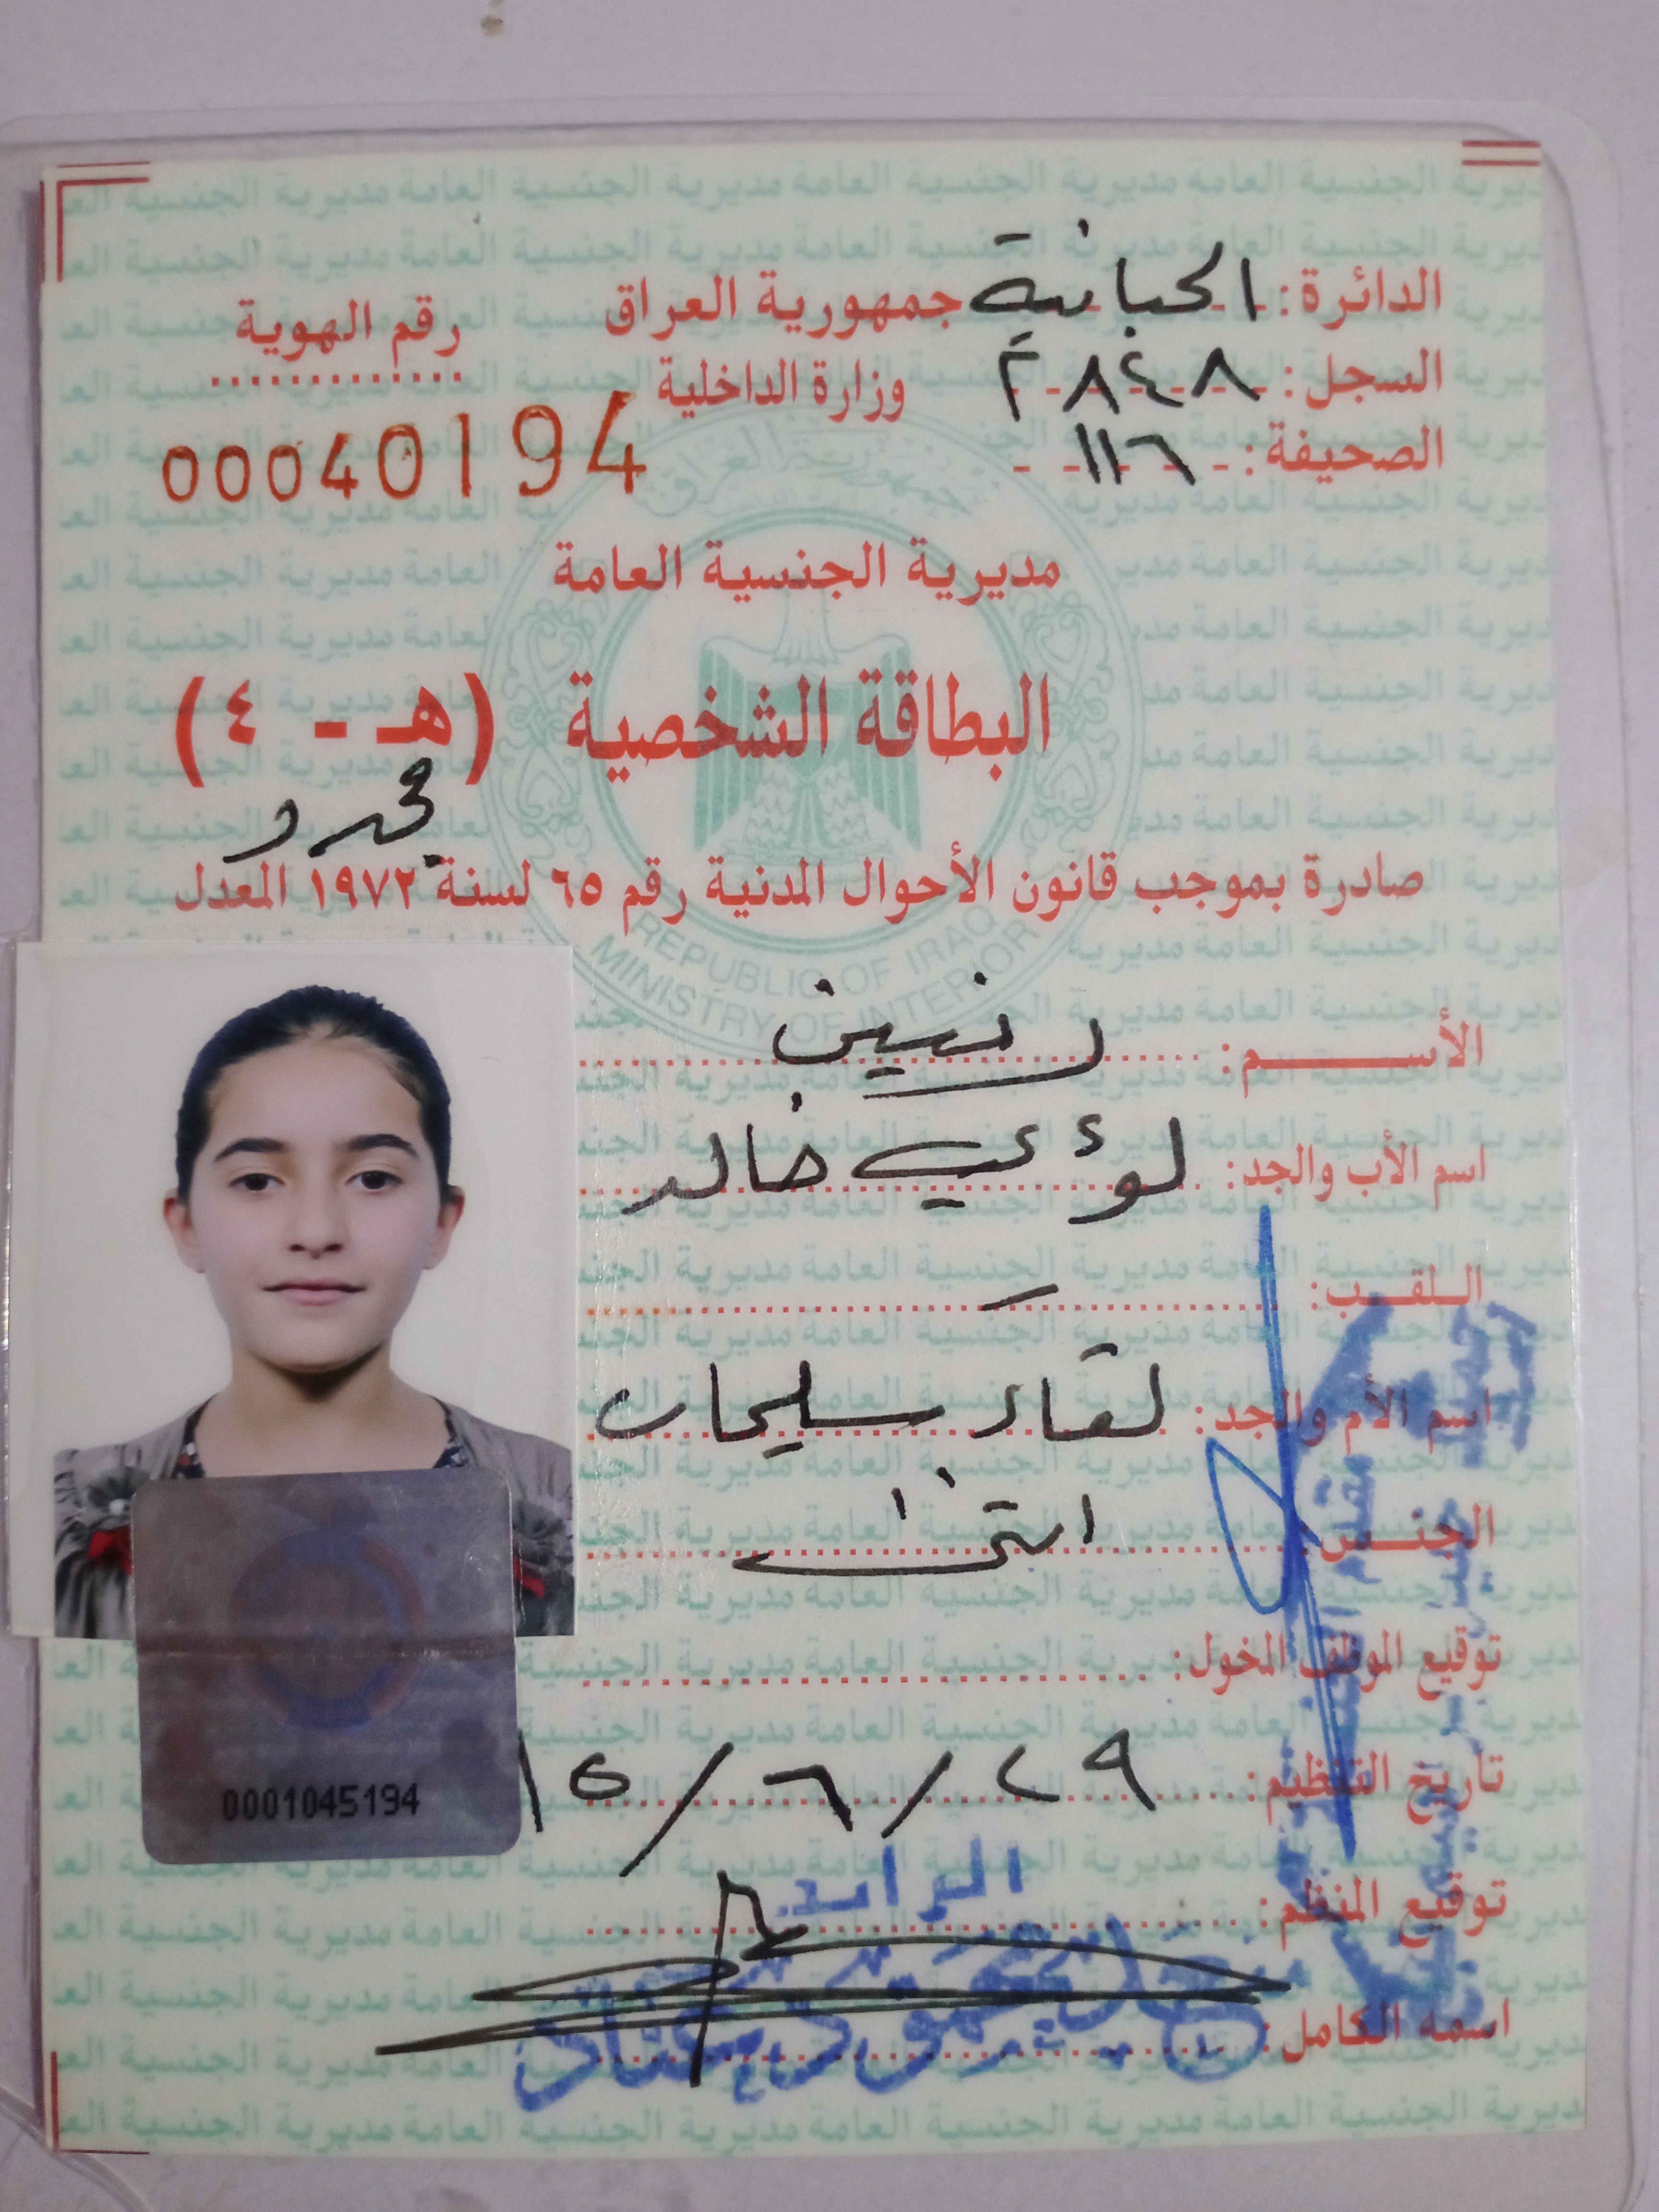 الدائرة: الحبانية
جمهورية العراق
رقم الهوية
السجل: ٢٨٤٨
وزارة الداخلية
00040194
الصحيفة: ١١٦
مديرية الجنسية العامة
البطاقة الشخصية (هـ - ٤)
مجدد
صادرة بموجب قانون الأحوال المدنية رقم ٦٥ لسنة ١٩٧٢ المعدل
REPUBLIC OF IRAQ
MINISTRY OF INTERIOR
الأســـــم: رنين
اسم الأب والجد: لؤي خالد
الـلقـــب: -
اسم الأم والجد: لقاء سليمان
الجنـــس: انثى
توقيع الموظف المخول:
تاريخ التنظيم: ٢٩/٦/١٥
0001045194
توقيع المنظم:
الرائد
اسمه الكامل: